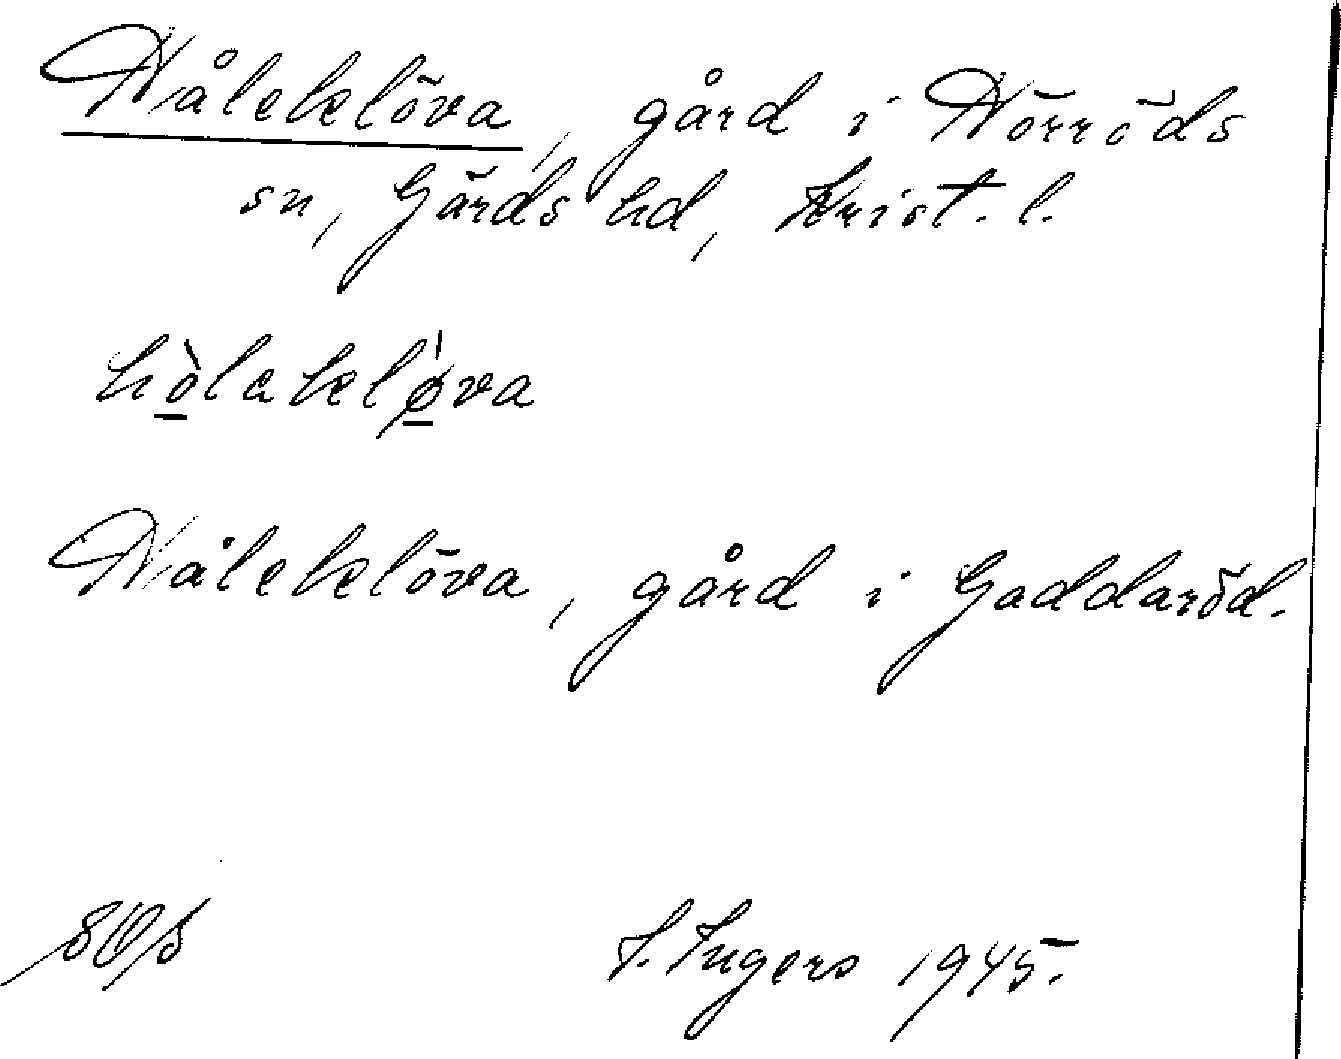 Håleklöva, gård i Hörröds
sn, Gärds hd, Krist. l.
hòlaklø̀va
Håleklöva, gård i Gaddaröd.
I. Ingers 1945.